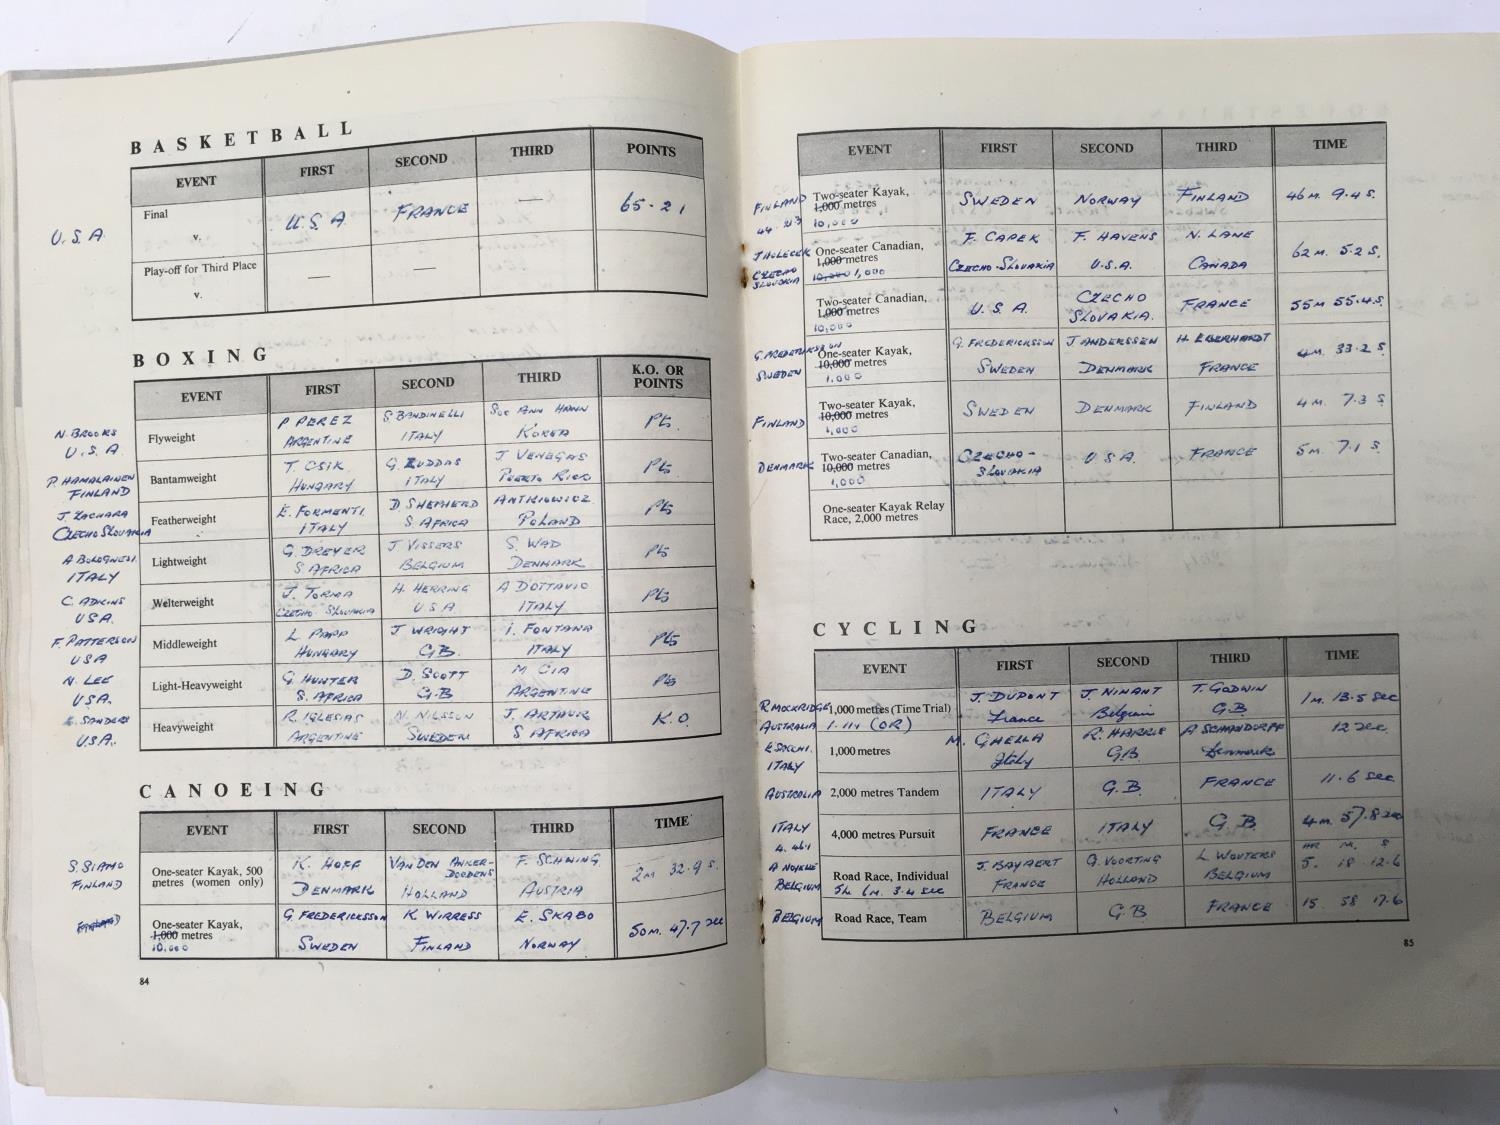 BASKETBALL
EVENT FIRST SECOND THIRD POINTS
Final
v.
U.S.A U.S.A FRANCE — 65-21
Play-off for Third Place
v.
— —
BOXING
EVENT FIRST SECOND THIRD K.O. OR POINTS
N. BROOKS U.S.A Flyweight P PEREZ ARGENTINE S. BANDINELLI ITALY Soo ANN HANN KOREA Pts.
P. HAMALAINEN FINLAND Bantamweight T. CSIK HUNGARY G. ZUDDAS ITALY J VENEGAS PUERTO RICO Pts
J. ZACHARA CZECHO SLOVAKIA Featherweight E. FORMENTI ITALY D. SHEPHERD S. AFRICA ANTKIOWICZ POLAND Pts
A BOLOGNESI ITALY Lightweight G. DREYER S. AFRICA J VISSERS BELGIUM S. WAD DENMARK Pts
C. ADKINS USA. Welterweight J. TORMA CZECHO SLOVAKIA H. HERRING U S A A DOTTAVIO ITALY Pts
F. PATTERSON USA Middleweight L PAPP HUNGARY J WRIGHT G.B. I. FONTANA ITALY Pts
N. LEE USA. Light-Heavyweight G. HUNTER S. AFRICA D. SCOTT G.B M CIA ARGENTINE Pts
E. SANDERS U.S.A. Heavyweight R. IGLESIAS ARGENTINE N. NILSSON SWEDEN J. ARTHUR S AFRICA K.O.
CANOEING
EVENT FIRST SECOND THIRD TIME
S. SIAMO FINLAND One-seater Kayak, 500 metres (women only) K. HOFF DENMARK VAN DEN ANKER-DOEDENS HOLLAND F. SCHWING AUSTRIA 2M 32.9 S.
FINLAND One-seater Kayak, 1,000 metres 10,000 G. FREDERICKSSON SWEDEN K. WIRRESS FINLAND E. SKABO NORWAY 50M. 47.7 sec
84
EVENT FIRST SECOND THIRD TIME
FINLAND 44 21 3 Two-seater Kayak, 1,000 metres 10,000 SWEDEN NORWAY FINLAND 46 M. 9.4 S.
J HOLECEK CZECHO SLOVAKIA One-seater Canadian, 1,000 metres 10,000 1,000 F. CAPEK CZECHO-SLOVAKIA F. HAVENS U.S.A. N. LANE CANADA 62 M. 5.2 S.
Two-seater Canadian, 1,000 metres 10,000 U.S.A. CZECHO SLOVAKIA. FRANCE 55M 55.4 S.
G. FREDERIKSSON SWEDEN One-seater Kayak, 10,000 metres 1.000 G. FREDERICKSSON SWEDEN J ANDERSSEN DENMARK H. EBERHARDT FRANCE 4M. 33.2 S.
FINLAND Two-seater Kayak, 10,000 metres 1,000 SWEDEN DENMARK FINLAND 4 M. 7.3 S
DENMARK Two-seater Canadian, 10,000 metres 1,000 CZECHO-SLOVAKIA U SA. FRANCE 5M. 7.1 S.
One-seater Kayak Relay Race, 2,000 metres
CYCLING
EVENT FIRST SECOND THIRD TIME
R. MOCKRIDGE AUSTRALIA 1,000 metres (Time Trial) 1.11.1 (OR) J. DUPONT France J. NIHANT Belgium T. GODWIN G.B 1M. 13.5 sec
E SACCHI. ITALY 1,000 metres M. GHELLA Italy R. HARRIS G.B. A SCHANDORFF Denmark 12 sec.
AUSTRALIA 2,000 metres Tandem ITALY G.B. FRANCE 11.6 sec
ITALY 4.46.1 4,000 metres Pursuit FRANCE ITALY G.B. 4M. 57.8 sec
HR M. S
A NOYELLE BELGIUM Road Race, Individual 5h 6m. 3.4 sec J. BAYAERT FRANCE G. VOORTING HOLLAND L WOUTERS BELGIUM 5. 18 12.6
BELGIUM Road Race, Team BELGIUM G.B. FRANCE 15 58 17.6
85